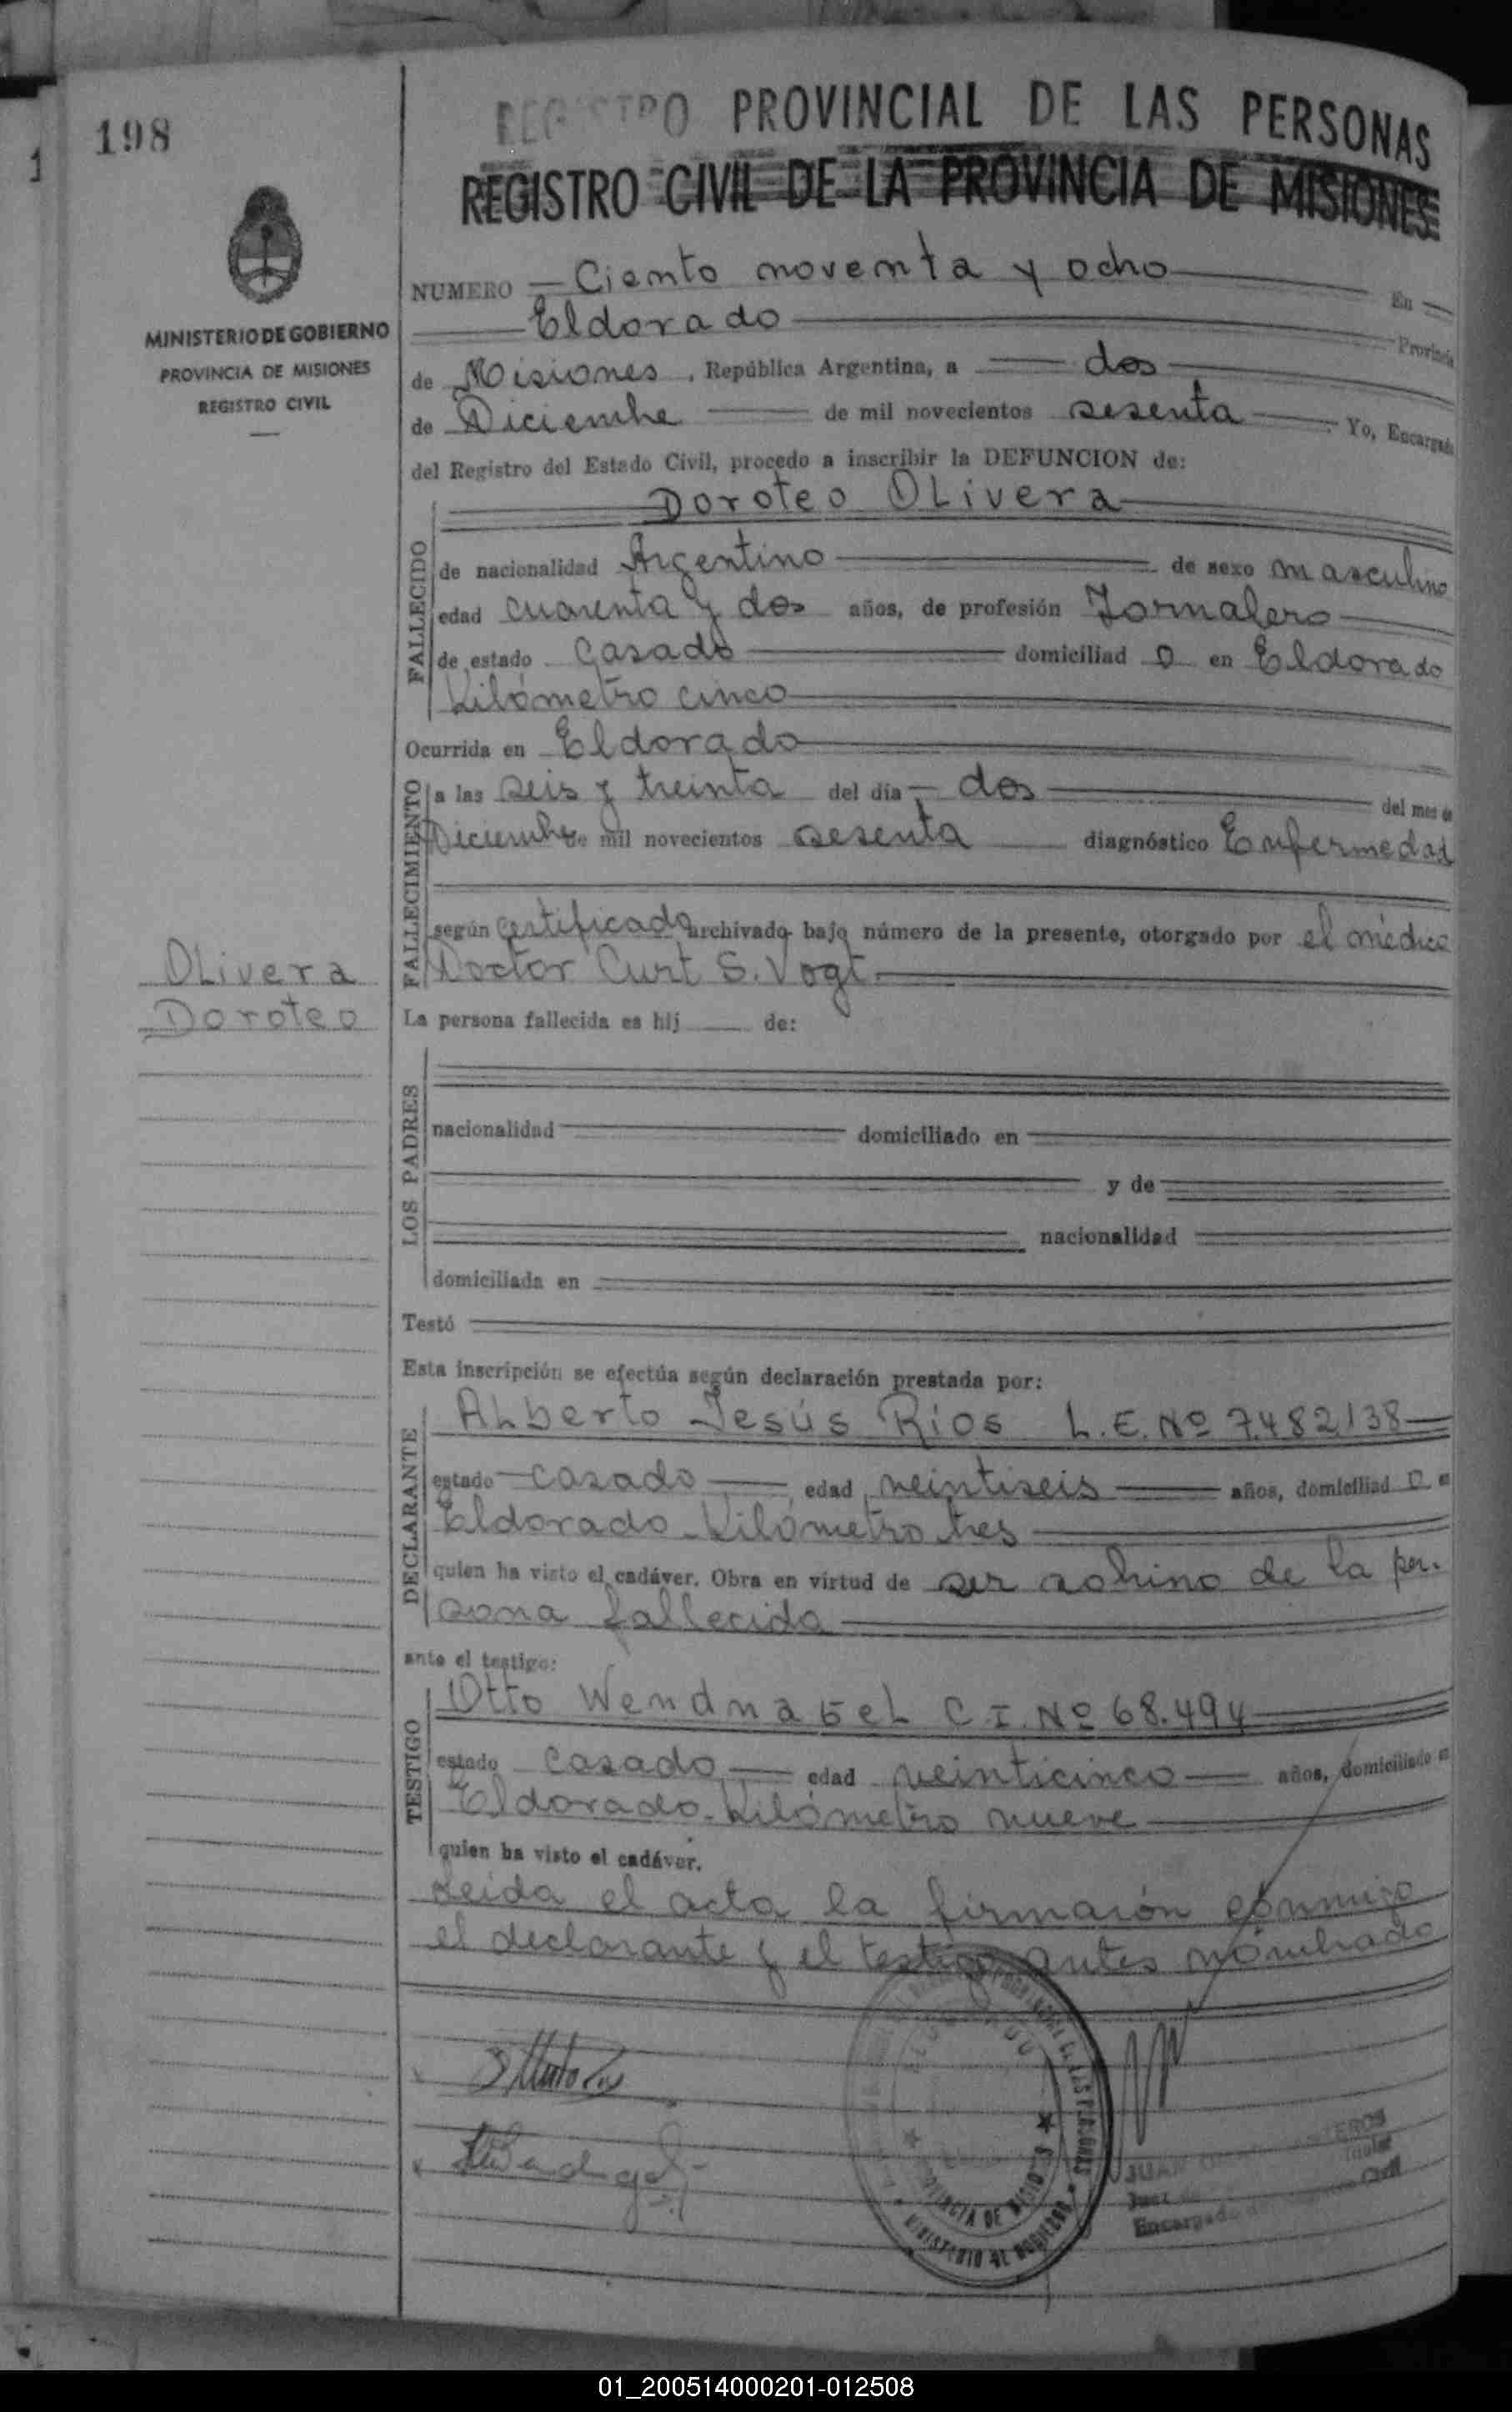 198
REGISTRO PROVINCIAL DE LAS PERSONAS
REGISTRO CIVIL DE LA PROVINCIA DE MISIONES
MINISTERIO DE GOBIERNO
PROVINCIA DE MISIONES
REGISTRO CIVIL
NUMERO Ciento noventa y ocho En
Eldorado Provincia
de Misiones, República Argentina, a dos
de Diciembre de mil novecientos sesenta Yo, Encargado
del Registro del Estado Civil, procedo a inscribir la DEFUNCION de:
FALLECIDO
Doroteo Olivera
de nacionalidad Argentino de sexo masculino
edad cuarenta y dos años, de profesión Jornalero
de estado Casado domiciliad o en Eldorado
Kilómetro cinco
Ocurrida en Eldorado
FALLECIMIENTO
a las seis y treinta del día dos del mes de
Diciembre de mil novecientos sesenta diagnóstico Enfermedad
según certificado archivado bajo número de la presente, otorgado por el médico
Doctor Curt S. Vogt.
Olivera
Doroteo
La persona fallecida es hij de:
LOS PADRES
nacionalidad domiciliado en
y de
nacionalidad
domiciliada en
Testó
Esta inscripción se efectúa según declaración prestada por:
DECLARANTE
Alberto Jesús Ríos L.E. Nº 7.482138
estado casado edad veintiseis años, domiciliad o en
Eldorado Kilómetro tres
quien ha visto el cadáver. Obra en virtud de ser sobrino de la per-
sona fallecida
ante el testigo:
TESTIGO
Otto Wendnagel C.I. Nº 68.494
estado Casado edad veinticinco años, domiciliado en
Eldorado Kilómetro nueve
quien ha visto el cadáver.
Leida el acta la firmarón conmigo
el declarante y el testigo antes nombrado
PROVINCIA DE MISIONES
MINISTERIO DE GOBIERNO
JUAN
Juez
Encargado
Civil
01_200514000201-012508